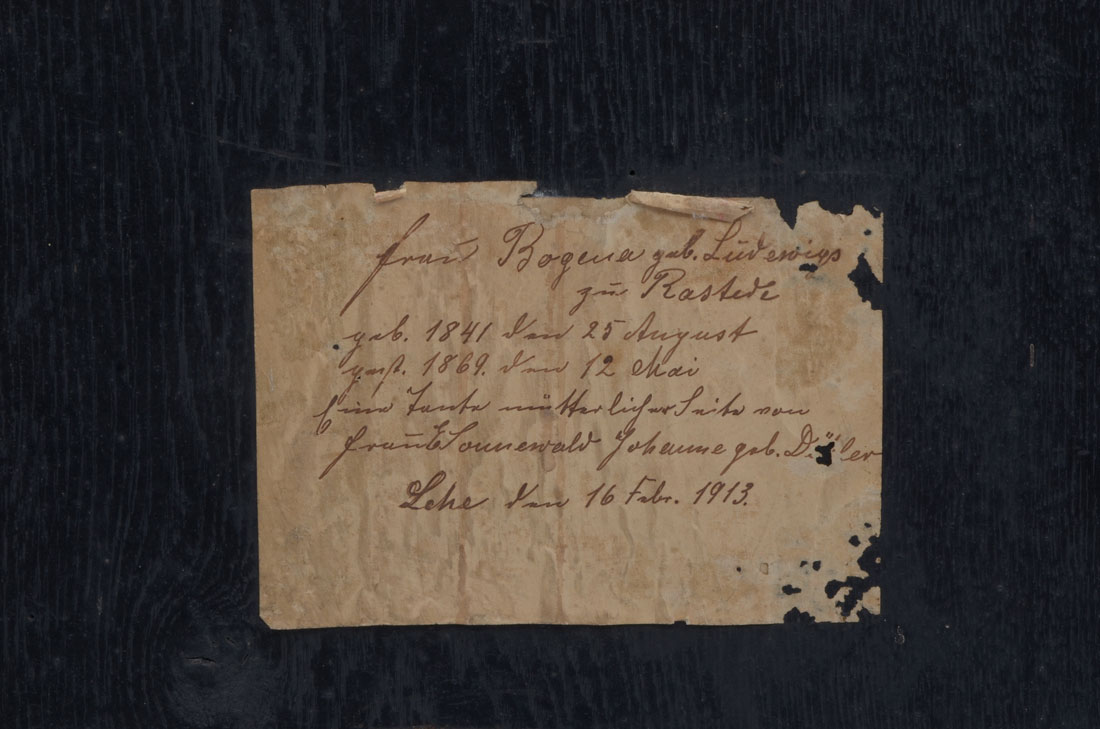 Frau Bogena geb. Ludewigs
zu Rastede
geb. 1841 den 25 August
gest. 1869. den 12 Mai
Eine Tante mütterlicher Seite von
Frau Sonnewald Johanne geb.
Lehe den 16 Febr. 1913.